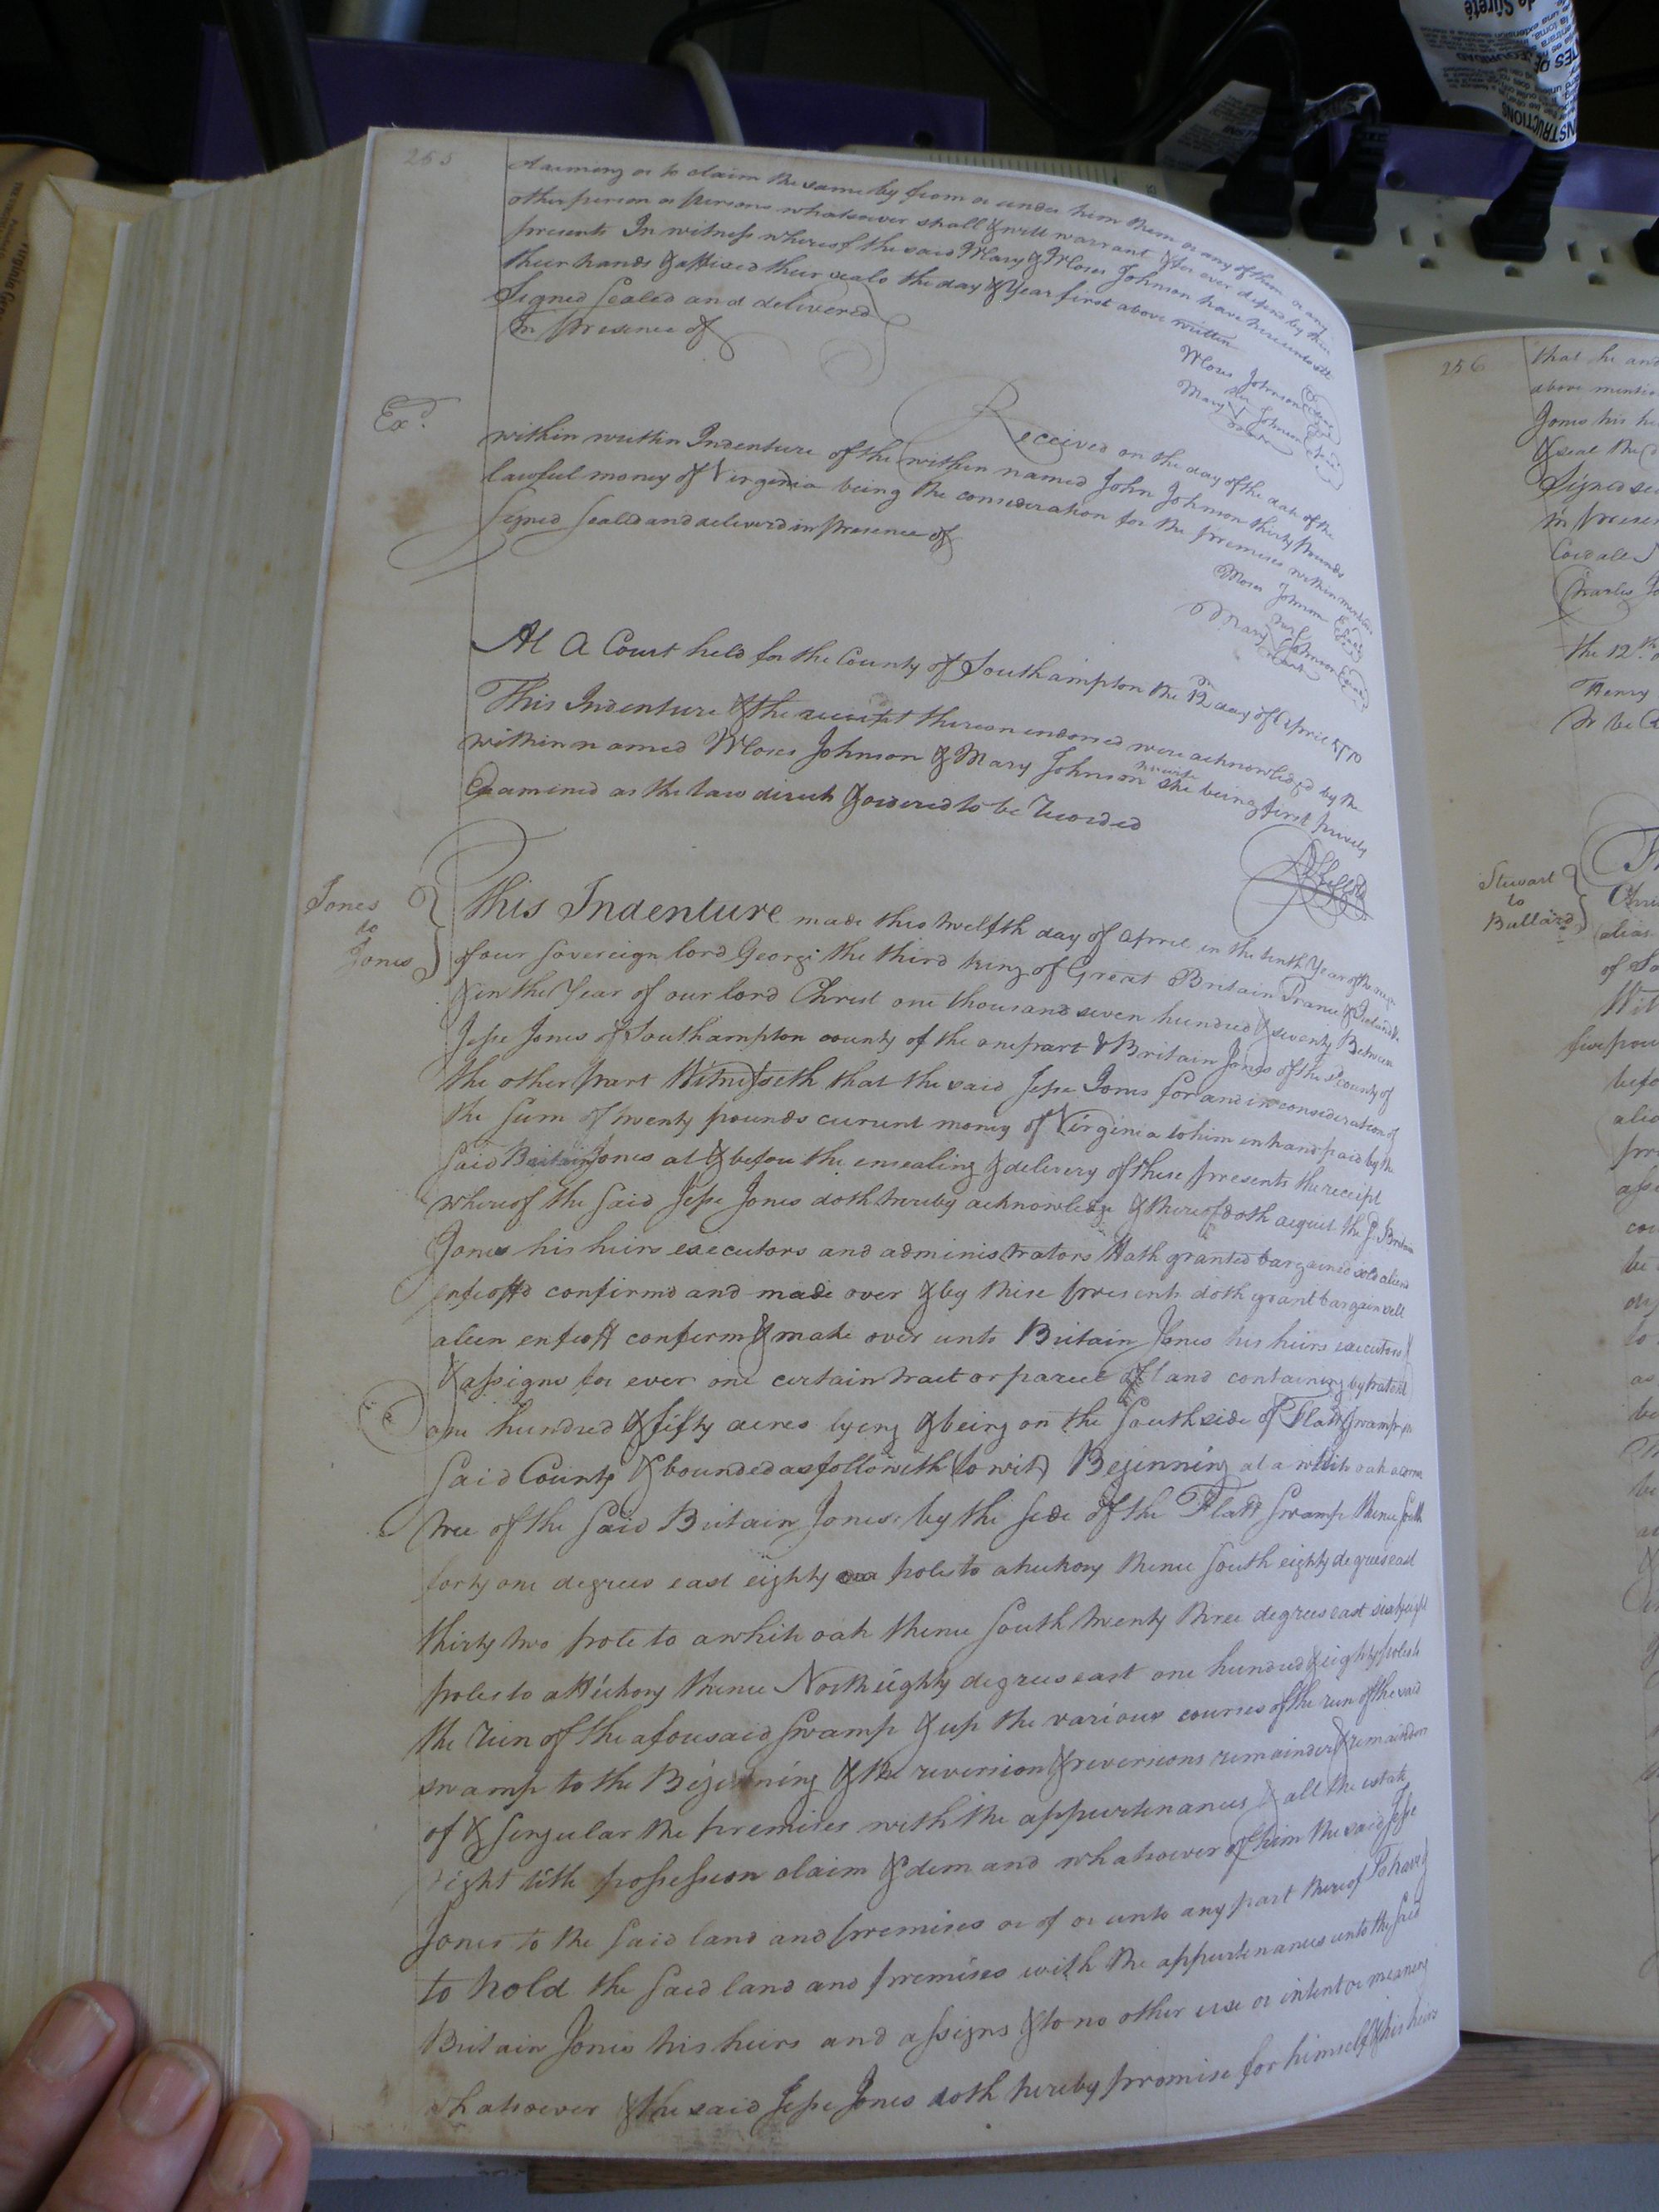 255
claiming or to claim the same by from or under him them or any of them or any
other person or persons whatsoever shall & will warrant & for ever defend by these
presents In witness whereof the said Mary & Moses Johnson have hereunto set
their hands & affixed their seals the day & Year first above written
Signed Sealed and delivered
In presence of
Moses Johnson
her
Mary Johnson
mark
Ex.d
Received on the day of the date of the
within written Indenture of the within named John Johnson thirty Pounds
lawful money of Virginia being the consideration for the premises within mention
Signed Sealed and deliver'd in presence of
Moses Johnson
her
Mary Johnson
mark
At A Court held for the County of Southampton the 12th day of April 1770
This Indenture & the receipt thereon endorsed were acknowledged by the
within named Moses Johnson & Mary Johnson his wife she being first privily
Examined as the law directs & ordered to be recorded
Jones
to
Jones
This Indenture made this twelfth day of April in the tenth Year of the reign
of our Sovereign lord George the third king of Great Britain France & Ireland &c
& in the Year of our lord Christ one thousand seven hundred & seventy Between
Jesse Jones of Southampton county of the one part & Britain Jones of the sd county of
the other part Witnesseth that the said Jesse Jones for and in consideration of
the Sum of twenty pounds curunt money of Virginia to him in hand paid by the
Said Britain Jones at & before the ensealing & delivery of these presents the receipt
whereof the Said Jesse Jones doth hereby acknowledge & thereof doth acquit the sd Britain
Jones his heirs executors and administrators Hath granted bargained sold aliend
enfeoffd confirmd and made over & by these presents doth grant bargain sell
alien enfeoff confirm & make over unto Britain Jones his heirs executors
& assigns for ever one certain tract or parcel of land containing by patent
one hundred & fifty acres lying & being on the South side of Flatt Swamp in
Said County & bounded as followeth (to wit) Beginning at a white oak a corner
tree of the Said Britain Jones by the Side of the Flatt Swamp thence South
forty one degrees east eighty poles to a hickory thence South eighty degrees east
thirty two pole to a white oak thence South twenty three degrees east sixty eight
poles to a Hickory thence North eighty degrees east one hundred & eighty poles to
the run of the aforesaid Swamp & up the various courses of the run of the said
swamp to the Begining & the reversion & reversions remainder & remainders
of & Singular the premises with the appurtenances & all the estate
right title possession claim & demand whatsoever of him the said Jesse
Jones to the Said land and premises or of or unto any part thereof To have &
to hold the Said land and premises with the appurtenances unto the Said
Britain Jones his heirs and assigns & to no other use or intent or meaning
whatsoever & the said Jesse Jones doth hereby promise for himself & his heirs
256
that he and
above mentio
Jones his he
& seal the
Signed sea
in presen
Charles
the 12th
Henry
Stewart
to
Bullard